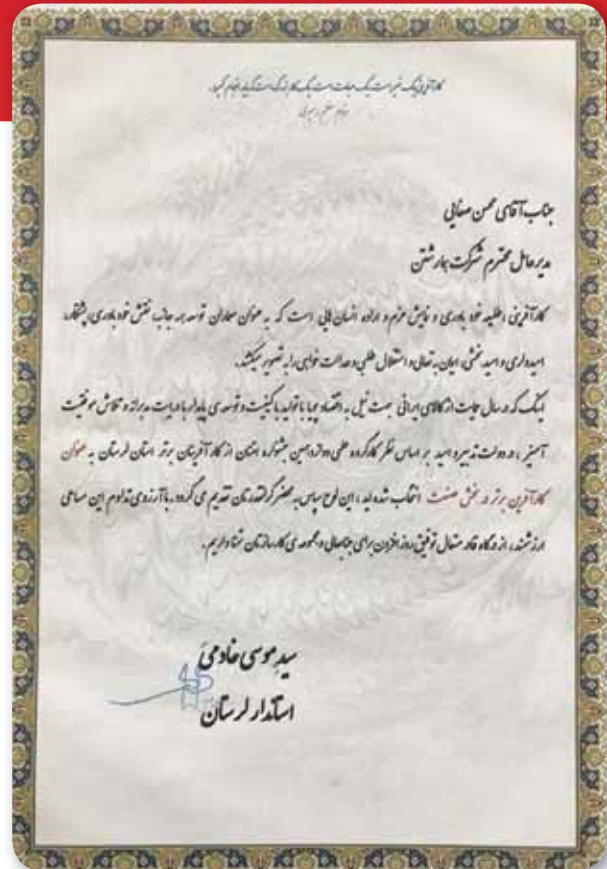 کارآفرینی یک خیر است یک عبادت است یک کار بزرگ است که باید انجام گیرد.
مقام معظم رهبری
جناب آقای محسن صفایی
مدیرعامل محترم شرکت بهار رشتن
کارآفرینی، طلیعه خود باوری و نمایش عزم و اراده انسان هایی است که به عنوان معماران توسعه همه جانبه، نقش خودباوری، پشتکار،
امیدواری و امید بخشی، ایمان به تعالی و استقلال طلبی و عدالت خواهی را به تصویر میکشند.
اینک که در سال حمایت از کالای ایرانی جهت نیل به اقتصاد پویا با تولید با کیفیت و توسعه ی پایدار با درایت مدبرانه و تلاش موفقیت
آمیز، در دولت تدبیر و امید بر اساس نظر کارگروه علمی دوازدهمین جشنواره امتنان از کارآفرینان برتر استان لرستان به عنوان
کارآفرین برتر در بخش صنعت انتخاب شده اید، این لوح سپاس به محضر گرانقدرتان تقدیم می گردد. با آرزوی تداوم این مساعی
ارزشمند، از درگاه قادر متعال توفیق روز افزون برای جنابعالی و مجموعه ی کارسازتان تمنا داریم.
سید موسی خادمی
استاندار لرستان